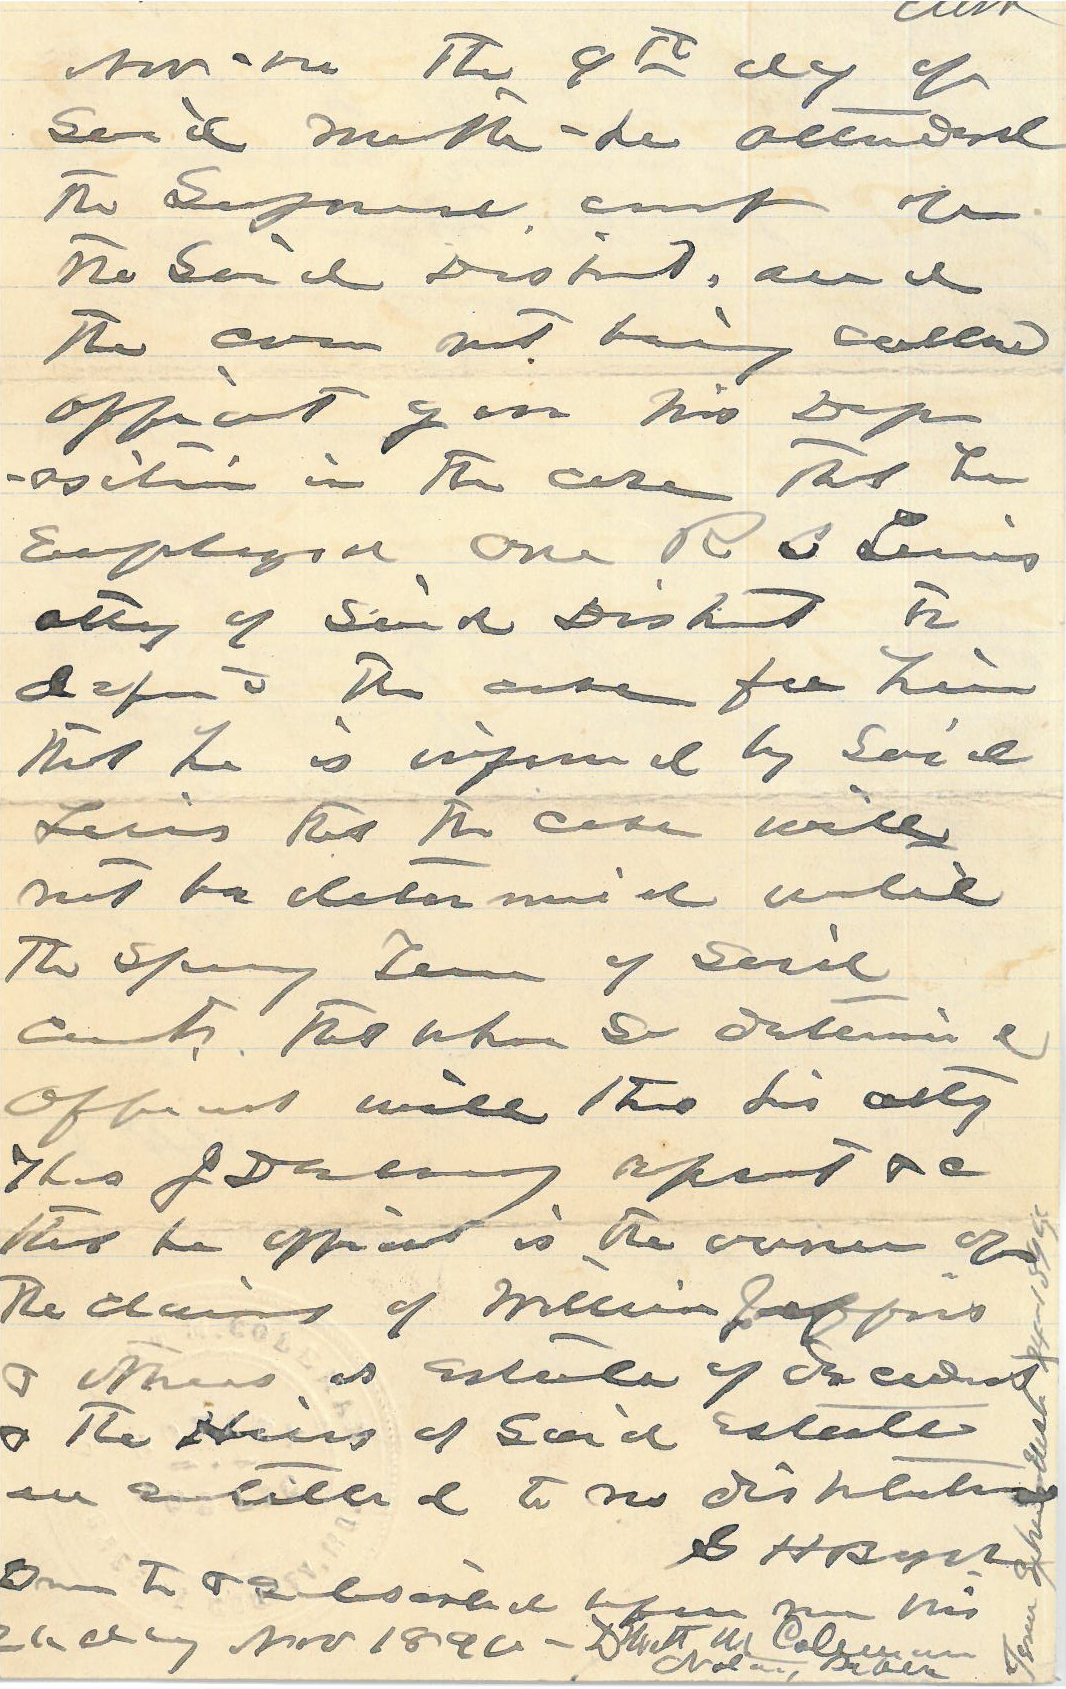 Nov - on The 9th day of
Said month - he attended
the Supreme court of
the Said District, and
the case not being called
affiant gave his Dep
-osition in the case that he
Employed One R S Lewis
atty of Said District to
defend the case for him
that he is informed by Said
Lewis that the case will
not be determined until
the Spring Term of Said
court, that when So determined
affiant will thro his atty
Thos J report &c
that he affiant is the owner of
the claims of William Jeffris
& others vs Estate of decedent
& the Heirs of Said Estate
are entitled to no distribution
S H
Sworn to & subscribed before me this
day Nov 1890 - DWitt M Coleman
Notary Public